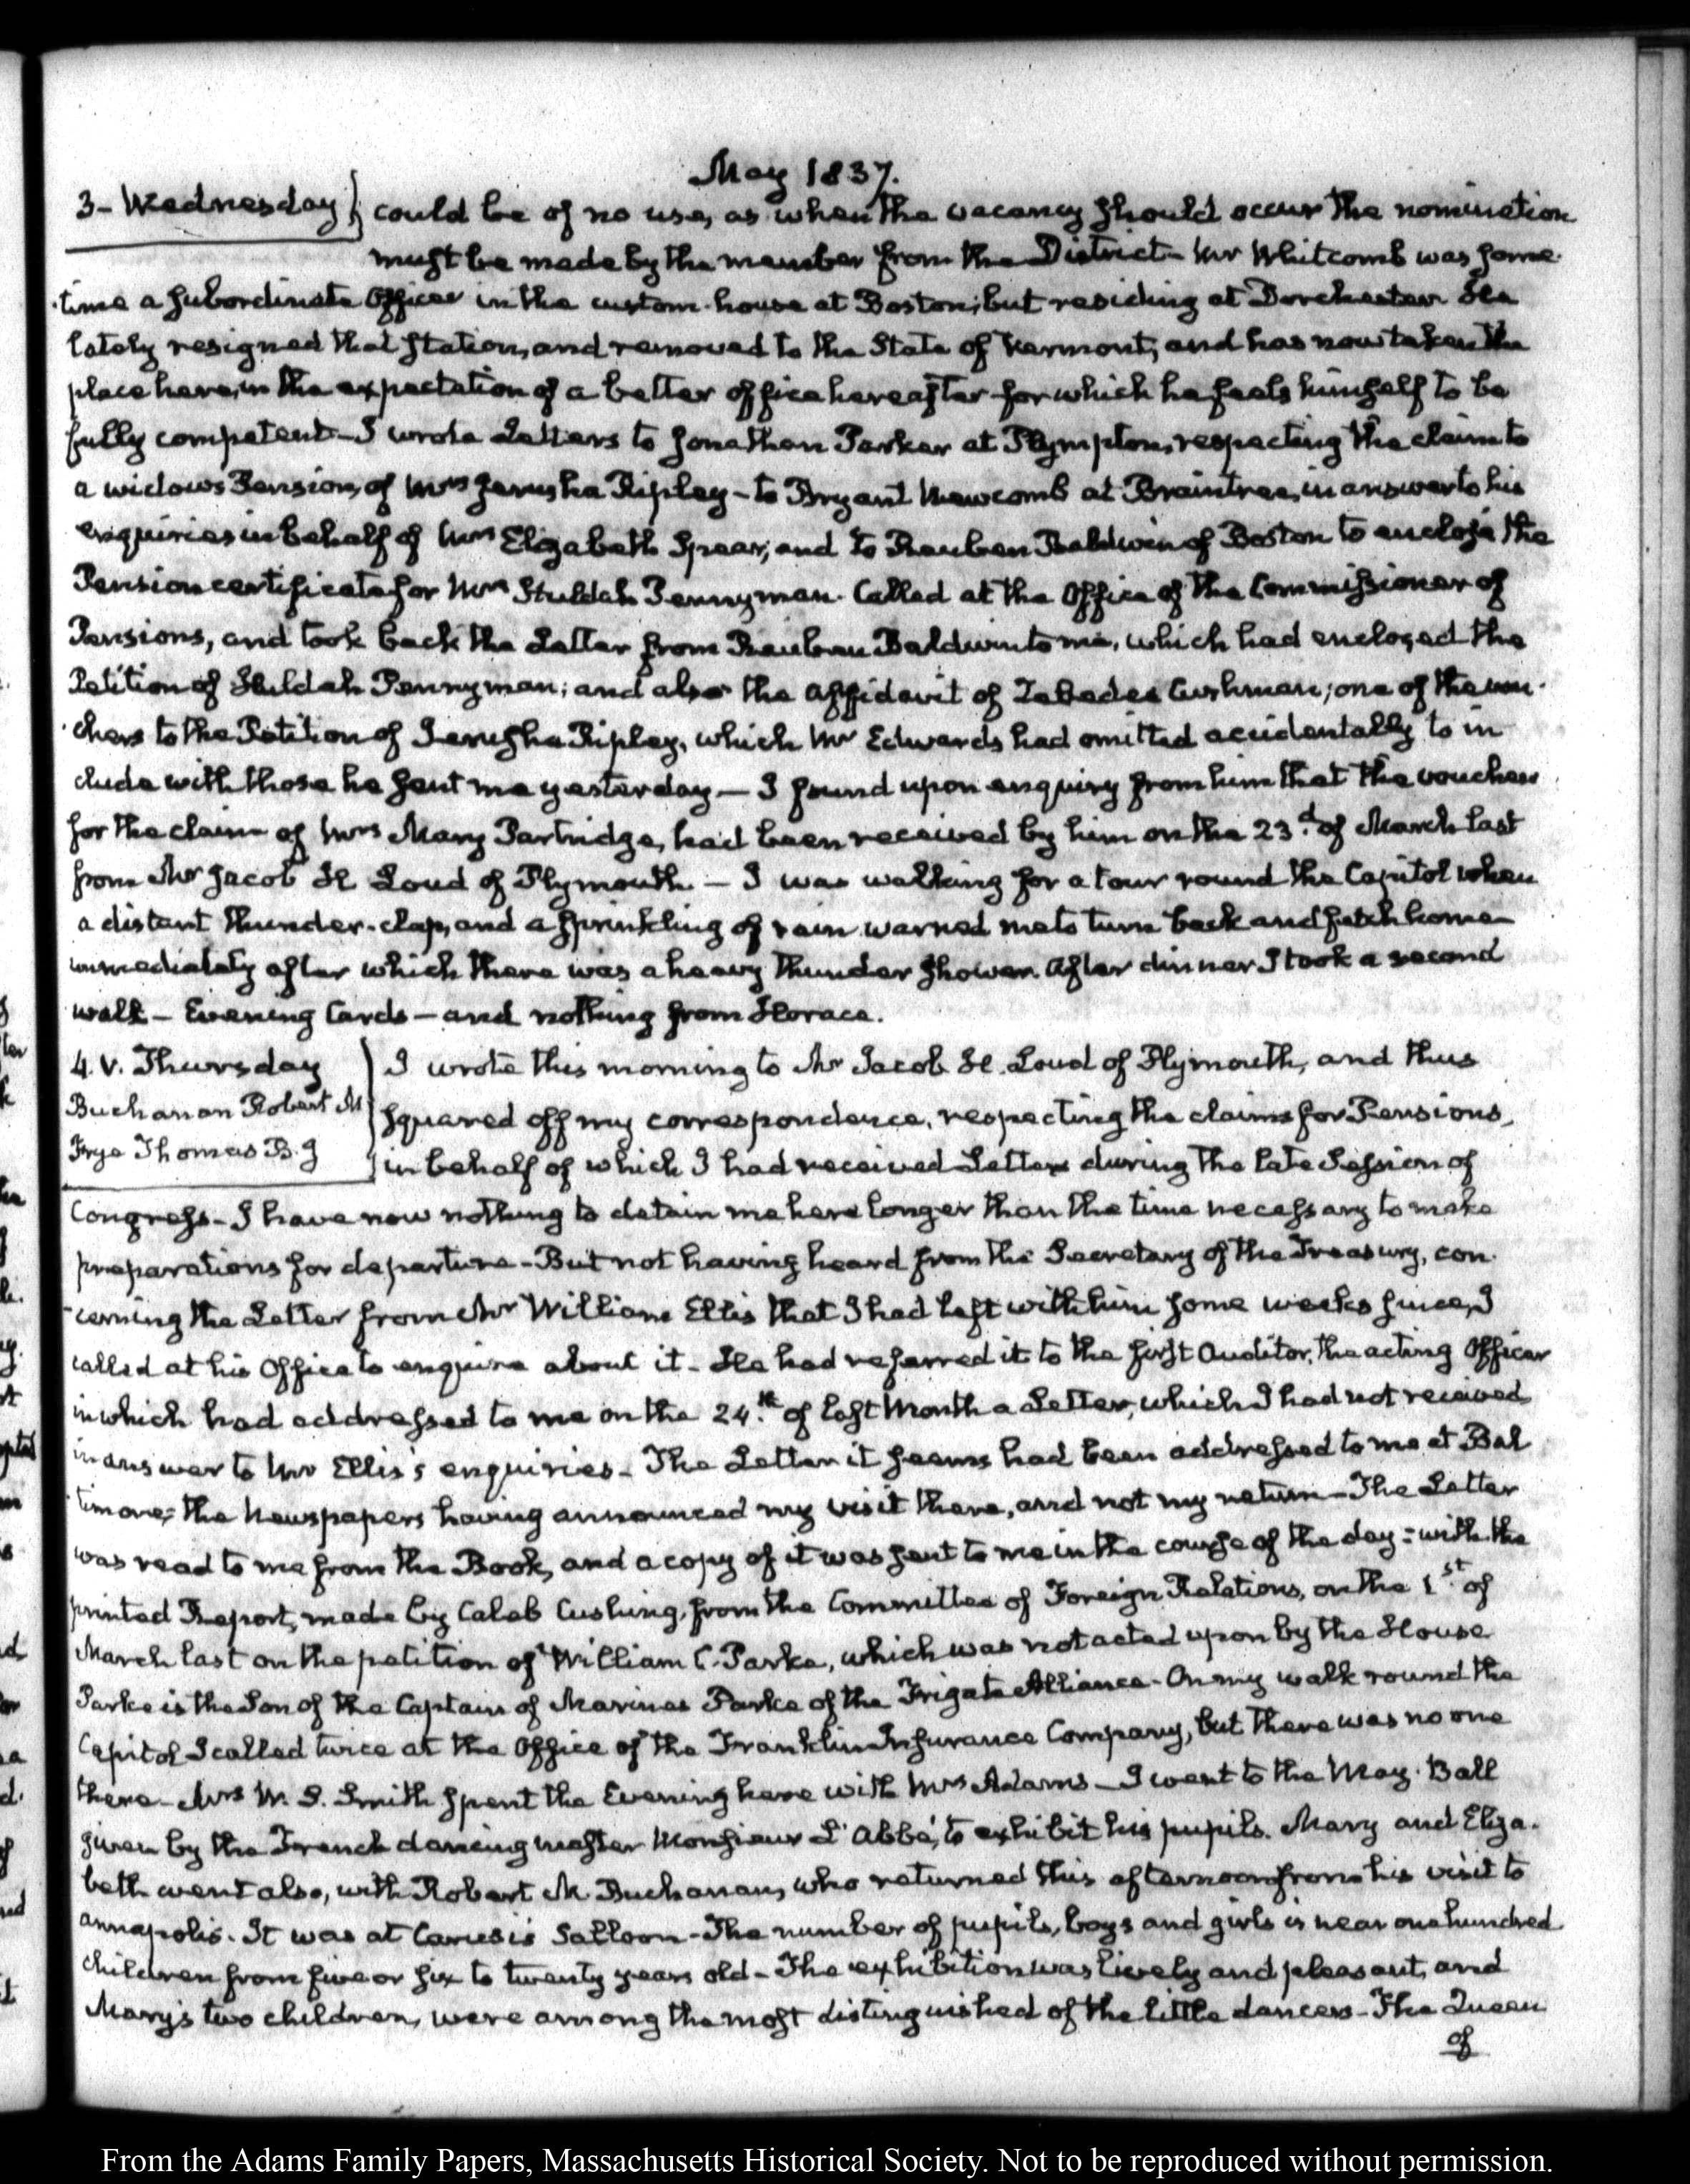 May 1837.
3- Wednesday } could be of no use, as when the vacancy should occur the nomination
must be made by the member from the District- Mr Whitcomb was some-
time a subordinate Officer in the custom-house at Boston; but residing at Dorchester He
lately resigned that Station, and removed to the State of Vermont, and has now taken the
place here, in the expectation of a better office hereafter for which he feels himself to be
fully competent- I wrote Letters to Jonathan Parker at Plympton, respecting the claim to
a widows Pension, of Mrs Jerusha Ripley- to Bryant Newcomb at Braintree, in answer to his
enquiries in behalf of Mrs Elizabeth Spear, and to Reuben Baldwin of Boston to enclose the
Pension certificate for Mrs Huldah Pennyman. Called at the Office of the Commissioner of
Pensions, and took back the Letter from Reuben Baldwin to me, which had enclosed the
Petition of Huldah Pennyman; and also the affidavit of Zebedee Cushman, one of the vou-
chers to the Petition of Jerusha Ripley, which Mr Edwards had omitted accidentally to in
clude with those he sent me yesterday- I found upon enquiry from him that the vouchers
for the claim of Mrs Mary Partridge, had been received by him on the 23.d of March last
from Mr Jacob H Loud of Plymouth- I was walking for a tour round the Capitol when
a distant thunder-clap, and a sprinkling of rain warned me to turn back and fetch home-
immediately after which there was a heavy thunder shower. After dinner I took a second
walk- Evening Cards- and nothing from Horace.
4. V. Thursday } I wrote this morning to Mr Jacob H. Loud of Plymouth, and thus
Buchanan Robert M squared off my correspondence, respecting the claims for Pensions,
Frye Thomas B. J in behalf of which I had received Letters during the late Session of
Congress- I have now nothing to detain me here longer than the time necessary to make
preparations for departure- But not having heard from the Secretary of the Treasury, con-
cerning the Letter from Mr William Ellis that I had left with him some weeks since, I
called at his Office to enquire about it- He had referred it to the first Auditor, the acting Officer
in which had addressed to me on the 24.th of last Month a Letter, which I had not received
in answer to Mr Ellis's enquiries- The Letter it seems had been addressed to me at Bal
timore; the Newspapers having announced my visit there, and not my return- The Letter
was read to me from the Book, and a copy of it was sent to me in the course of the day: with the
printed Report, made by Caleb Cushing, from the Committee of Foreign Relations, on the 1.st of
March last on the petition of William C. Parke, which was not acted upon by the House
Parke is the Son of the Captain of Marines Parke of the Frigate Alliance- On my walk round the
Capitol I called twice at the Office of the Franklin Insurance Company, but there was no one
there- Mrs W. S. Smith spent the Evening here with Mrs Adams- I went to the May-Ball
given by the French dancing master Monsieur L'Abbé, to exhibit his pupils. Mary and Eliza-
beth went also, with Robert M Buchanan, who returned this afternoon from his visit to
Annapolis. It was at Carusi's Salloon- The number of pupils, boys and girls is near one hundred
children from five or six to twenty years old- The exhibition was lively and pleasant, and
Mary's two children, were among the most distinguished of the little dancers- The Queen
of
From the Adams Family Papers, Massachusetts Historical Society. Not to be reproduced without permission.